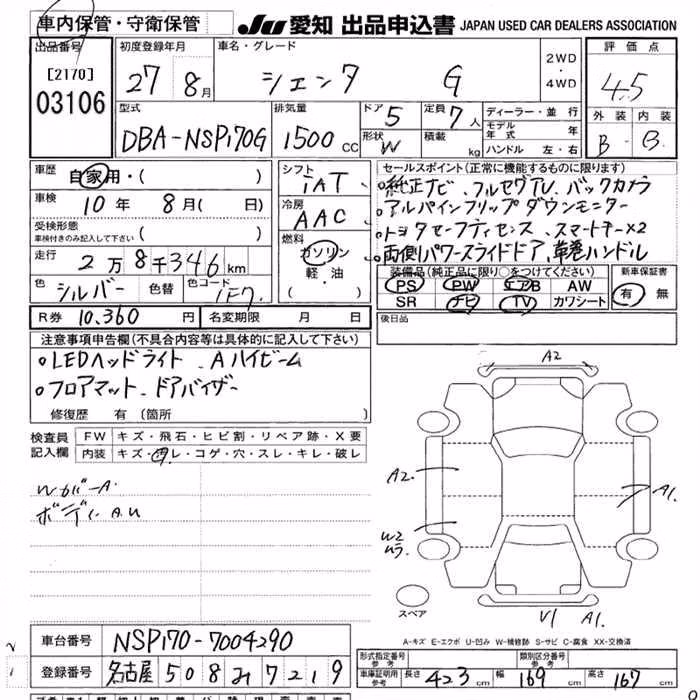 車内保管・守衛保管
JU 愛知 出品申込書 JAPAN USED CAR DEALERS ASSOCIATION
出品番号 初度登録年月 車名・グレード 2WD・4WD 評価点
[2170]
03106
27 8月 シエンタ G 4.5
型式 排気量 ドア 5 定員 7人 ディーラー・並行 外装 内装
DBA-NSP170G 1500cc 形状 W 積載 kg モデル年式 年 B B
ハンドル 左・右
車歴 自家用・( ) シフト セールスポイント(正常に機能するものに限ります)
IAT
・純正ナビ、フルセグTV、バックカメラ
車検 10年 8月( 日) 冷房 ・アルパインフリップダウンモニター
AAC
受検形態 ・トヨタセーフティセンス、スマートキー×2
車検付きのみ記入して下さい ( ) 燃料 ・両側パワースライドドア、革巻ハンドル
走行 2万8千346km ガソリン
軽・油
( )
装備品(純正品に限り○をつけてください) 新車保証書
PS PW エアB AW 有 無
SR ナビ TV カワシート
色 シルバー 色替 色コード 1F7
R券 10,360円 名変期限 月 日 後日品
注意事項申告欄(不具合内容等は具体的に記入して下さい)
・LEDヘッドライト、Aハイビーム
・フロアマット、ドアバイザー
修復歴 有 (箇所 )
検査員記入欄 FW キズ・飛石・ヒビ割・リペア跡・X要
内装 キズ・汚レ・コゲ・穴・スレ・キレ・破レ
WカバーA.
ボディA.U
A2
A2
A1.
W2
U1 A1.
スペア
A-キズ E-エクボ U-凹み W-補修跡 S-サビ C-腐食 XX-交換済
車台番号 NSP170-7004290
形式指定番号 参考 類別区分番号 参考
登録番号 名古屋 508 み 7219
車庫証明用 参考 長さ 423cm 幅 169cm 高さ 167cm